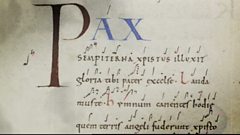 PAX
SEMPITERNA XPISTUS ILLUXIT
gloria tibi pater excelse Lauda
muste hymnum canentes hodie
quem terris angeli fuderunt xpisto